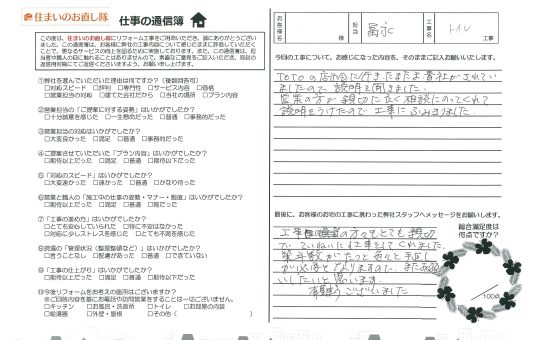 住まいのお直し隊
仕事の通信簿
この度は、住まいのお直し隊にリフォーム工事をご用命いただき、誠にありがとうございました。
①弊社を選んでいただいた理由は何ですか？（複数回答可）
□対応スピード □評判 □専門性 □サービス内容 □価格
□営業担当の対応 □建てた会社だから □当社の場所 □プラン内容
②営業担当の「ご提案に対する姿勢」はいかがでしたか？
□十分誠意を感じた □一生懸命だった □普通 □事務的だった
③営業担当の対応はいかがでしたか？
□大変良かった □満足 □普通 □事務的だった
④ご提案させていただいた「プラン内容」はいかがでしたか？
□期待以上だった □満足 □普通 □期待以下だった
⑤「対応のスピード」はいかがでしたか？
□大変速かった □速かった □普通 □かなり待った
⑥営業と職人の「施工中の仕事の姿勢・マナー・態度」はいかがでしたか？
□期待以上だった □満足 □普通 □雑だった
⑦「工事の進め方」はいかがでしたか？
□とても安心していられた □特に不安はなかった
□対応に少しストレスを感じた □とても不満を感じた
⑧現場の「管理状況（整理整頓など）」はいかがでしたか？
□言うことなし □配慮があった □普通 □できていない
⑨「工事の仕上がり」はいかがでしたか？
□期待以上だった □満足 □普通 □期待以下だった
⑩今後リフォームをお考えの箇所はございますか？
※ご回答内容を基にお電話や訪問営業をすることは一切ございません。
□キッチン □お風呂・洗面所 □トイレ □お部屋の内装
□給湯器 □外壁・屋根 □その他（ ）
お客様名
様
担当
冨永
工事名
トイレ
工事
今回の工事について、お感じになった内容を、そのままご記入お願いいたします。
TOTOの展示会に行きたまたま貴社がされていましたので説明を聞きました。
営業の方が親切に良く相談にのってくれて
説明をうけたので工事にふみきりました
最後に、お客様のお宅の工事に携わった弊社スタッフへメッセージをお願いします。
の方々もとても親切
でていねいに仕事をしてくれました。
築年数がたったら色々と手直し
が必要とでてきますので、またお願
いしたいと思います。
有難うございました
総合満足度は
何点ですか？
/100点